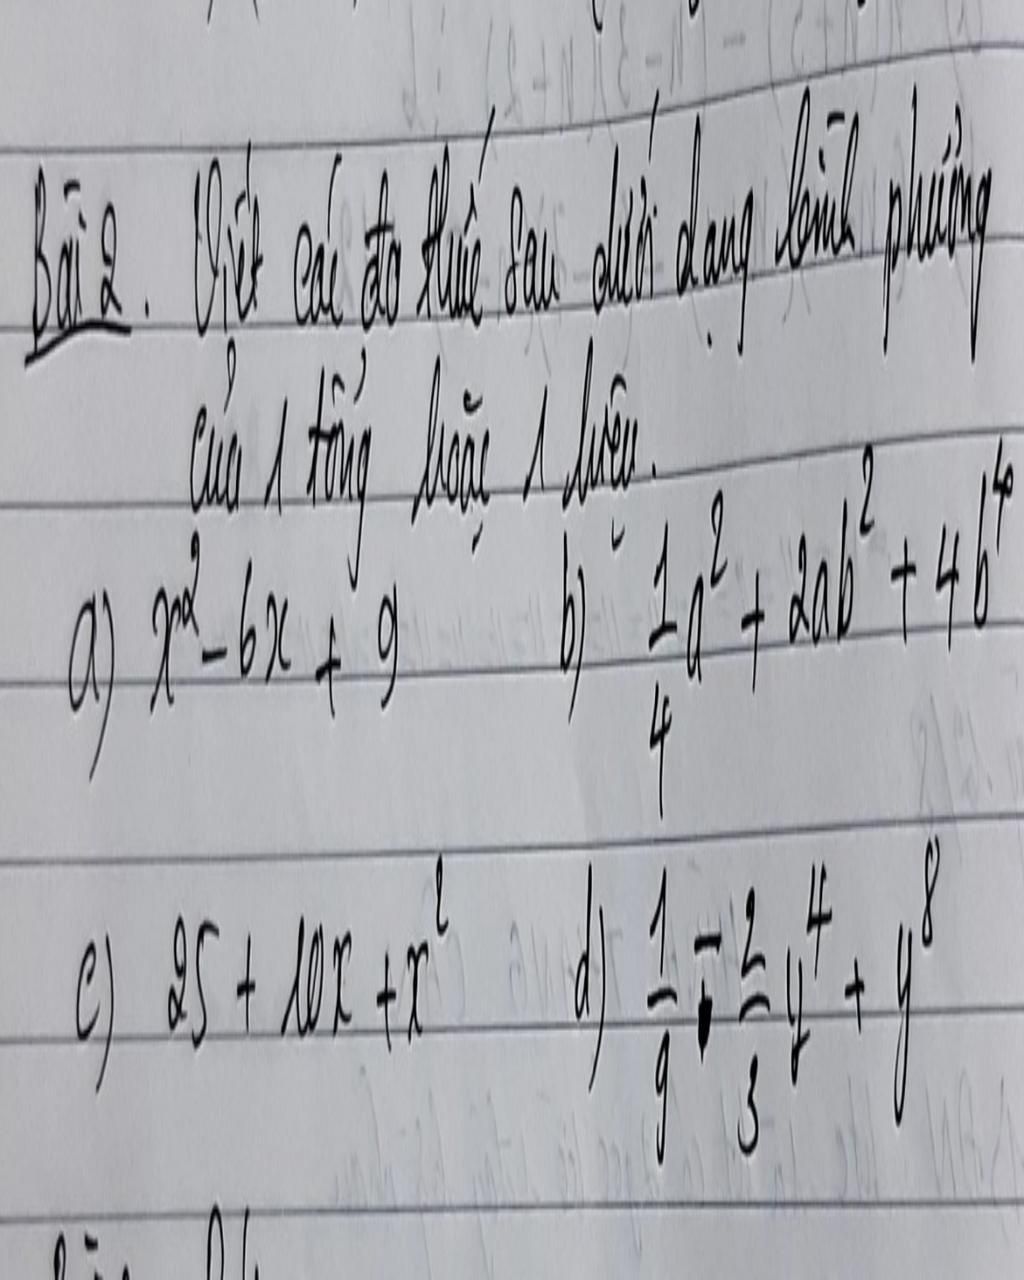 Bài 2. Viết các đa thức sau dưới dạng bình phương
của 1 tổng hoặc 1 hiệu.
a) x² - 6x + 9 b) 1/4 a² + 2ab² + 4b⁴
c) 25 + 10x + x² d) 1/9 - 2/3 y⁴ + y⁸